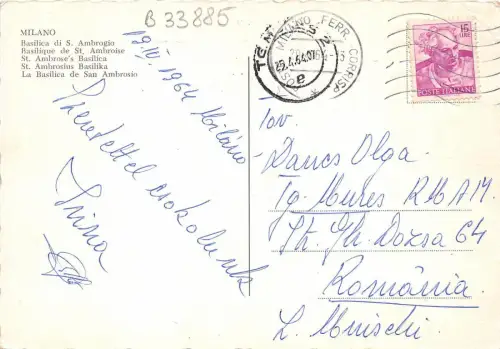 B 33885
MILANO
Basilica di S. Ambrogio
Basilique de St. Ambroise
St. Ambrose's Basilica
St. Ambrosius Basilika
La Basilica de San Ambrosio
19.IV 1964 Miláno
Szeretettel csókolunk
Irina
MILANO FERR. CORRISP
15
LIRE
POSTE ITALIANE
Tov.
Dancs Olga
Tg. Mures R.M.A.M.
Str. Gh. Dozsa 64
Románia